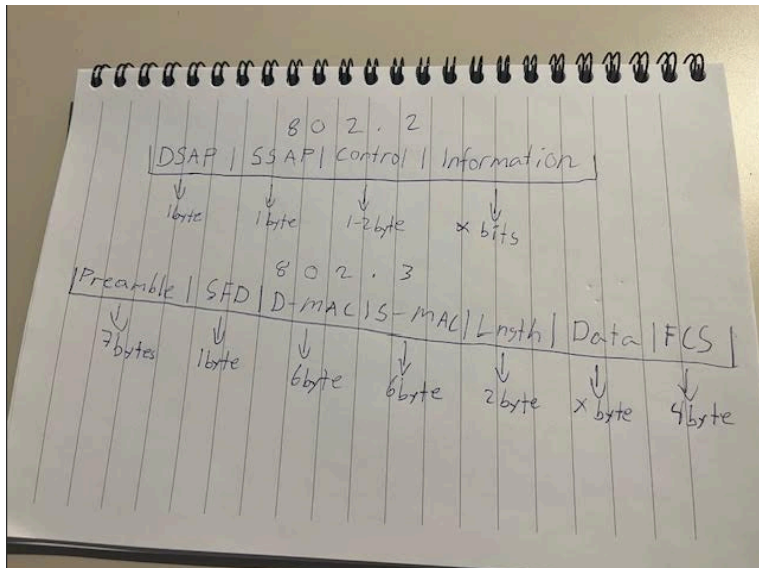 802.2
|DSAP | SSAP | Control | Information |
1byte 1byte 1-2byte x bits
802.3
|Preamble | SFD | D-MAC | S-MAC | Lngth | Data | FCS |
7bytes 1byte 6byte 6byte 2byte x byte 4byte